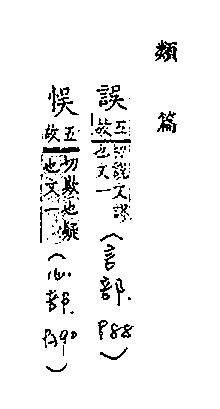 類篇
誤五故切說文謬也文一(言部.P88)
悮五故切欺也疑也文一(心部.P390)